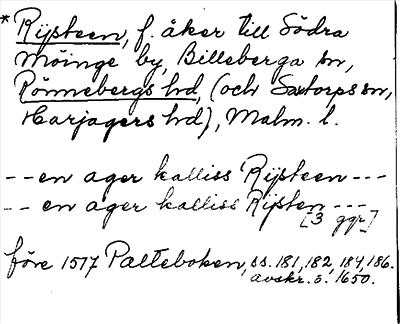 * Rijsteen, f. åker till Södra
Möinge by, Billeberga sn,
Rönnebergs hd, (och Saxtorps sn,
Harjagers hd), Malm. l.
-- en ager kalliss Rijsteen ---
-- en ager kalliss Rijsten ---
[3 ggr]
före 1517 Palteboken, ss. 181, 182, 184, 186.
avskr. s. 1650.